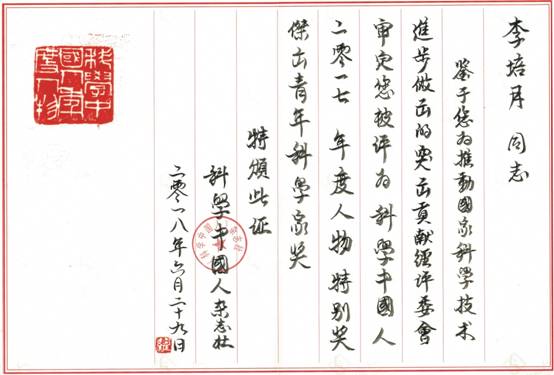 李培月 同志
鉴于您为推動國家科學技术
進步做出的突出貢献經评委會
审定您被评为科學中國人
二零一七年度人物特别奖
傑出青年科學家奖
特頒此证
科學中國人杂志社
二零一八年六月二十九日
科學中
國人年
度人物